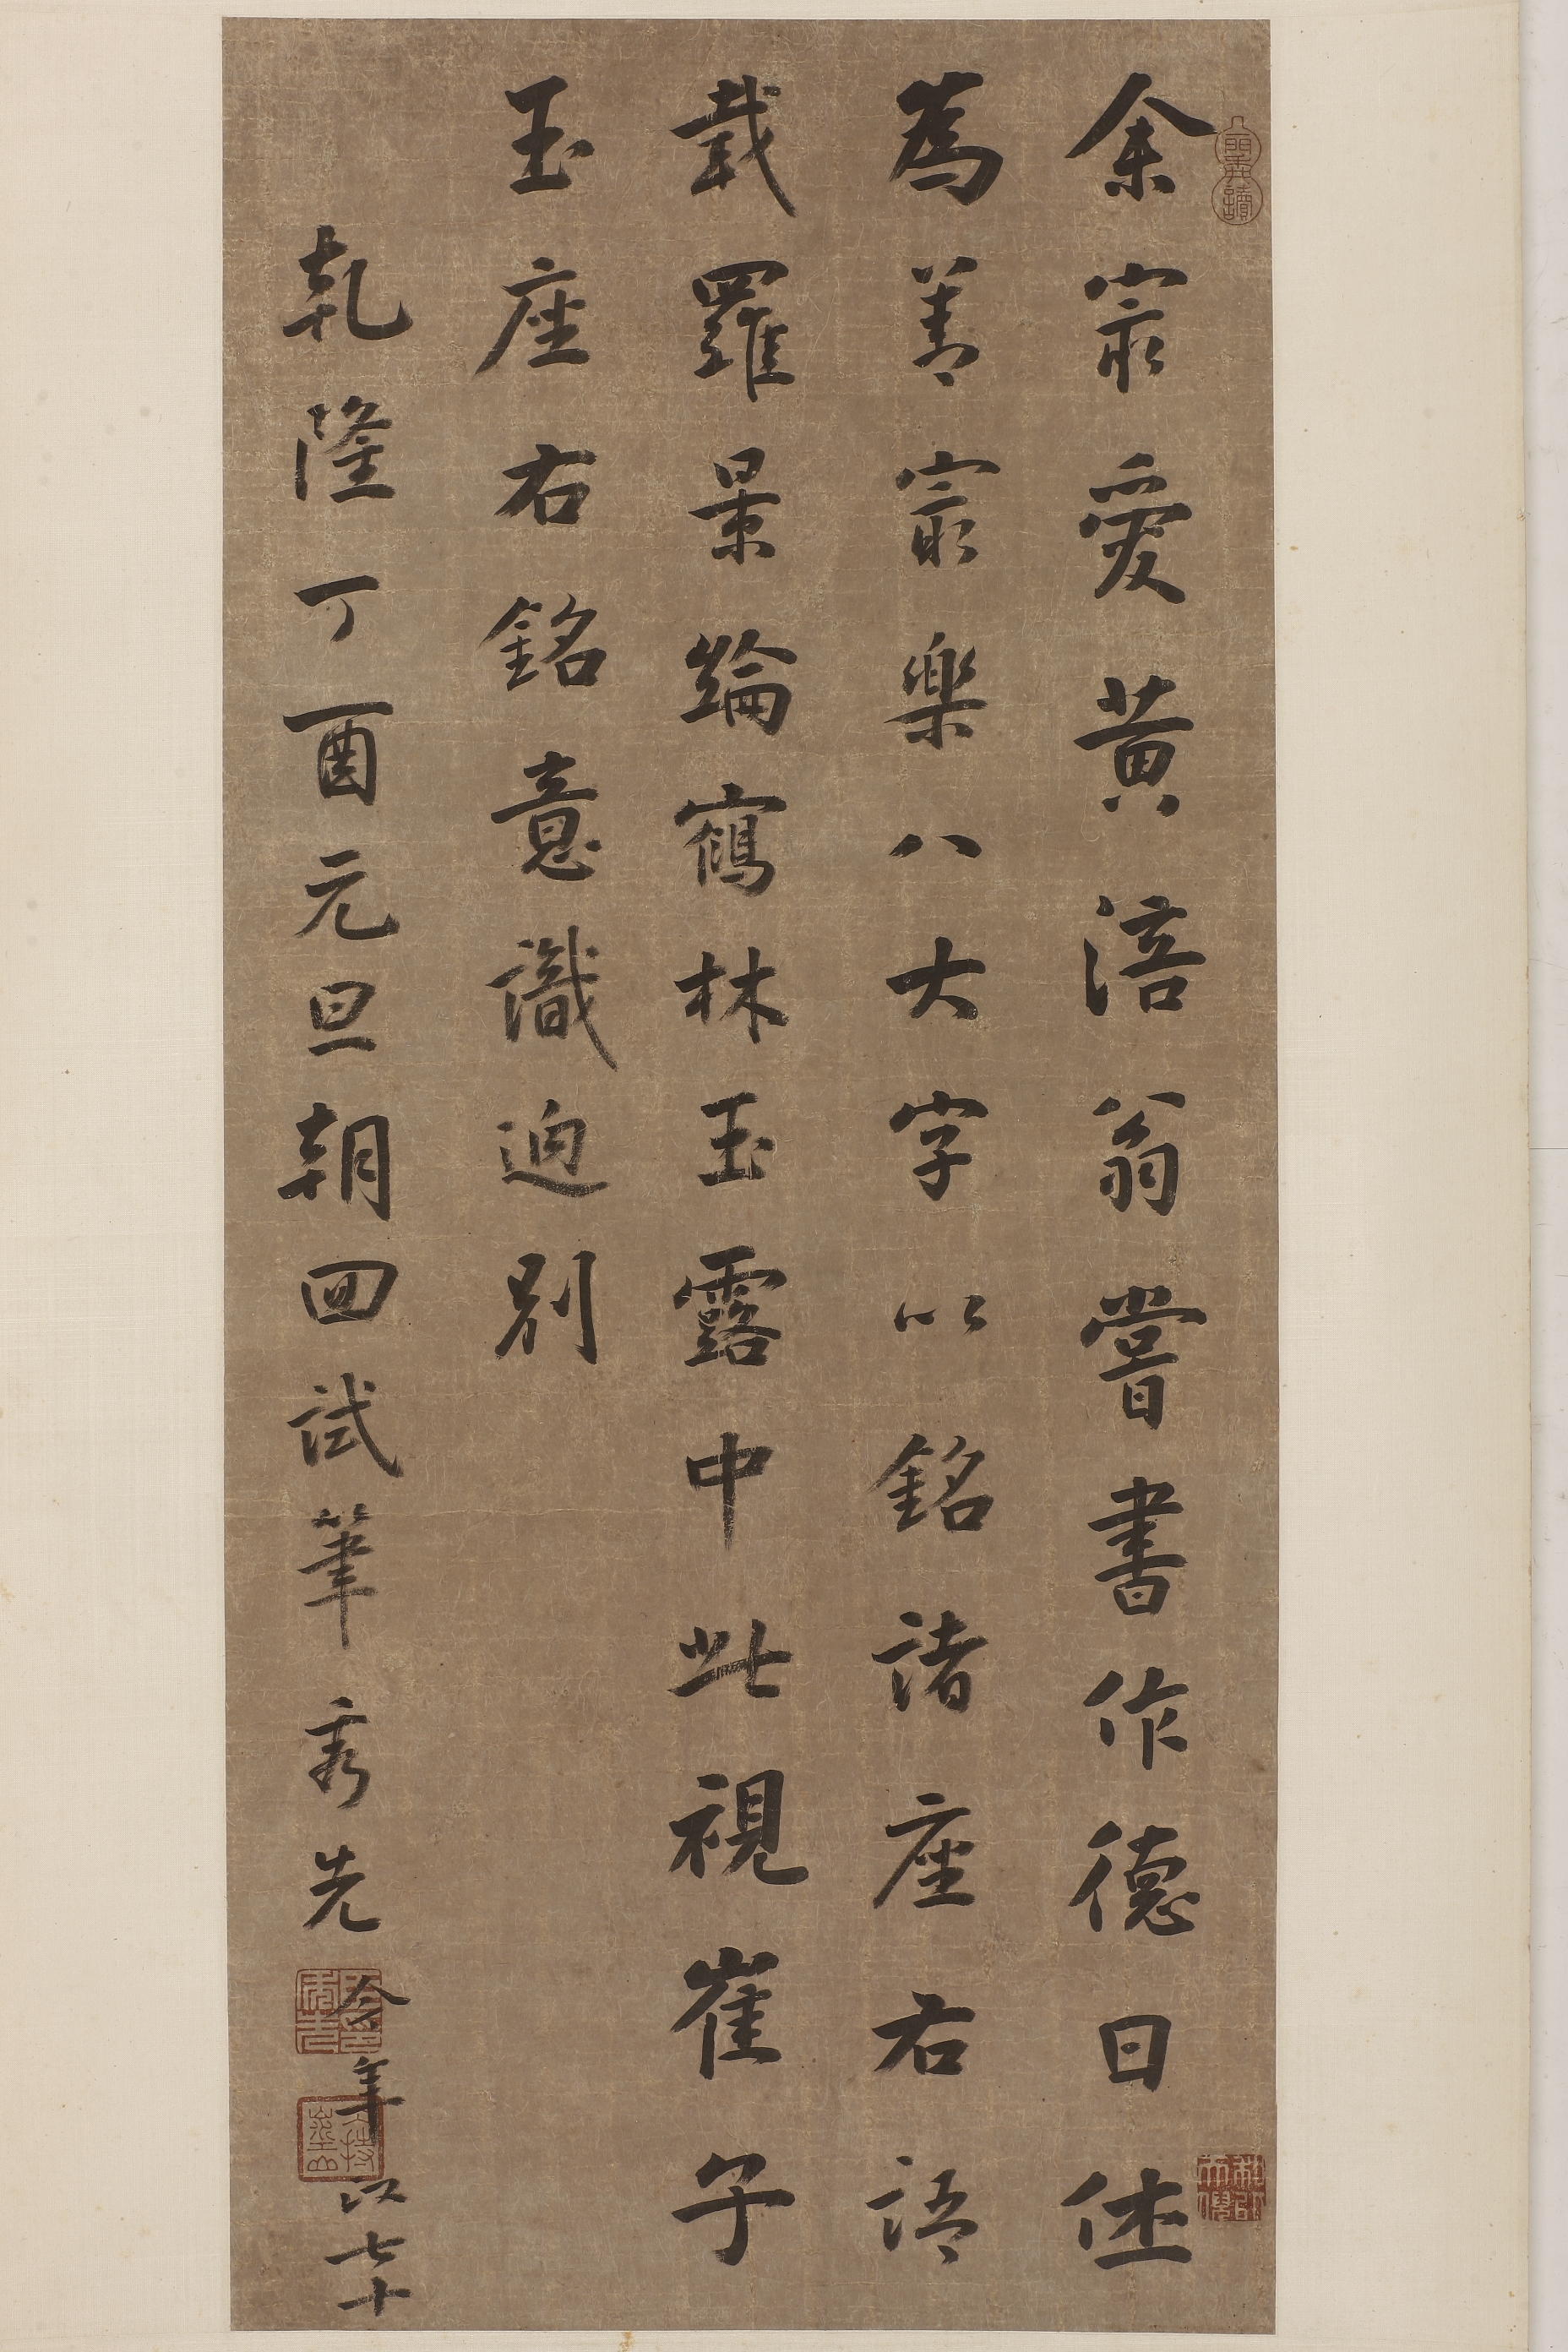 余㝡愛黃涪翁嘗書作德日休
為善㝡樂八大字以銘諸座右語
載羅景綸鶴林玉露中此視崔子
玉座右銘意識迥別
乾隆丁酉元旦朝回試筆秀先
今年七十